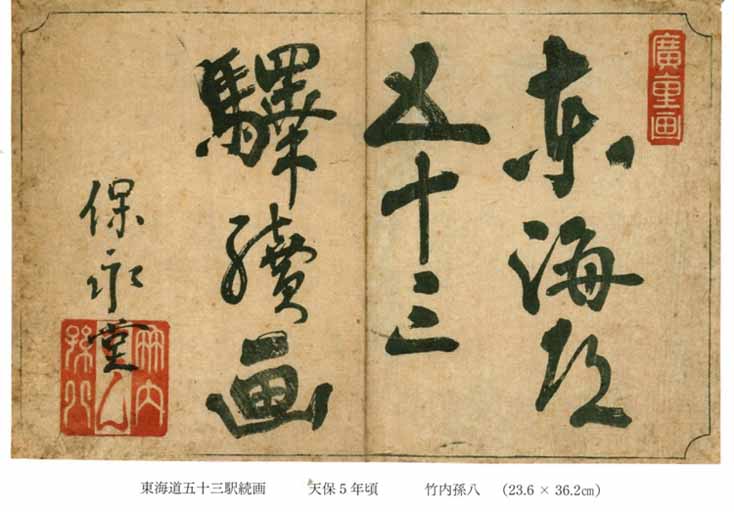 廣重画
東海道
五十三
驛續画
保永堂
竹内
孫八
東海道五十三駅続画 天保5年頃 竹内孫八 (23.6 × 36.2㎝)